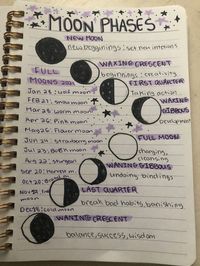 MOON PHASES
NEW MOON
new beginnings, set new intentions
WAXING CRESCENT
beginnings, creativity
FULL
MOONS
FIRST QUARTER
taking action
Jan 28: wolf moon
Feb 27: snow moon
WAXING
GIBBOUS
development
Mar 28: worm moon
Apr 26: Pink moon
May 26: Flower moon
Jun 24: strawberry moon
FULL MOON
charging,
cleansing
Jul 23: Buck moon
Aug 22: sturgeon
WANING GIBBOUS
undoing bindings
Sep 20: Harvest m.
Oct 20:
Nov 19:
moon
LAST QUARTER
break bad habits, banishing
Dec 18: cold moon
WANING CRESCENT
balance, success, wisdom